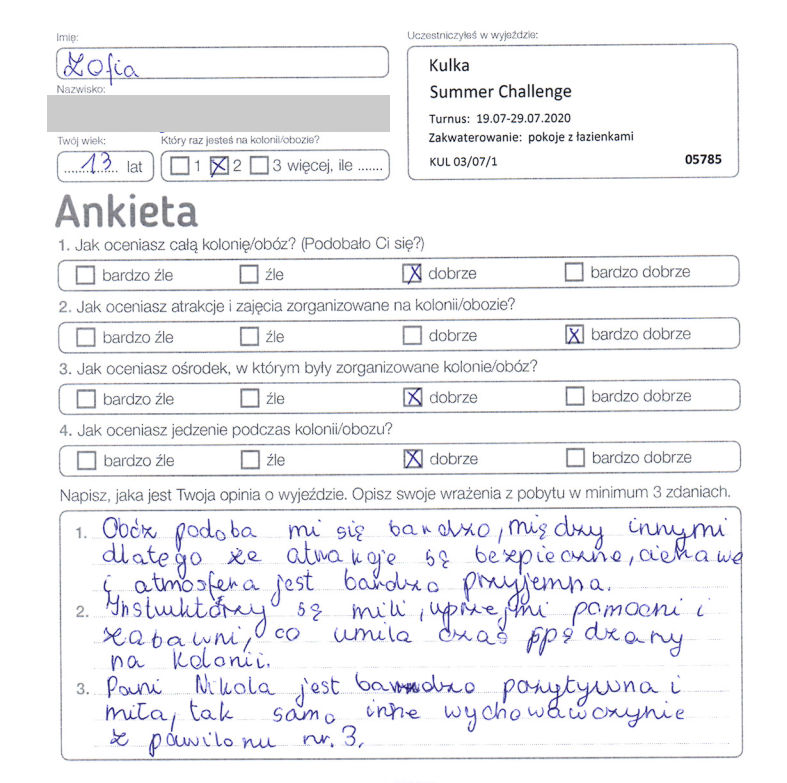 Imię:
Zofia
Nazwisko:
Uczestniczyłeś w wyjeździe:
Kulka
Summer Challenge
Turnus: 19.07-29.07.2020
Zakwaterowanie: pokoje z łazienkami
KUL 03/07/1 05785
Twój wiek: Który raz jesteś na kolonii/obozie?
13 lat 1 2 3 więcej, ile .......
Ankieta
1. Jak oceniasz całą kolonię/obóz? (Podobało Ci się?)
bardzo źle źle dobrze bardzo dobrze
2. Jak oceniasz atrakcje i zajęcia zorganizowane na kolonii/obozie?
bardzo źle źle dobrze bardzo dobrze
3. Jak oceniasz ośrodek, w którym były zorganizowane kolonie/obóz?
bardzo źle źle dobrze bardzo dobrze
4. Jak oceniasz jedzenie podczas kolonii/obozu?
bardzo źle źle dobrze bardzo dobrze
Napisz, jaka jest Twoja opinia o wyjeździe. Opisz swoje wrażenia z pobytu w minimum 3 zdaniach.
1. Obóz podoba mi się bardzo, między innymi
dlatego że atrakcje są bezpieczne, ciekawe
i atmosfera jest bardzo przyjemna.
2. Instruktorzy są mili, uprzejmi pomocni i
zabawni, co umila czas spędzany
na kolonii.
3. Pani Nikola jest bardzo pozytywna i
miła, tak samo inne wychowawczynie
z pawilonu nr. 3.